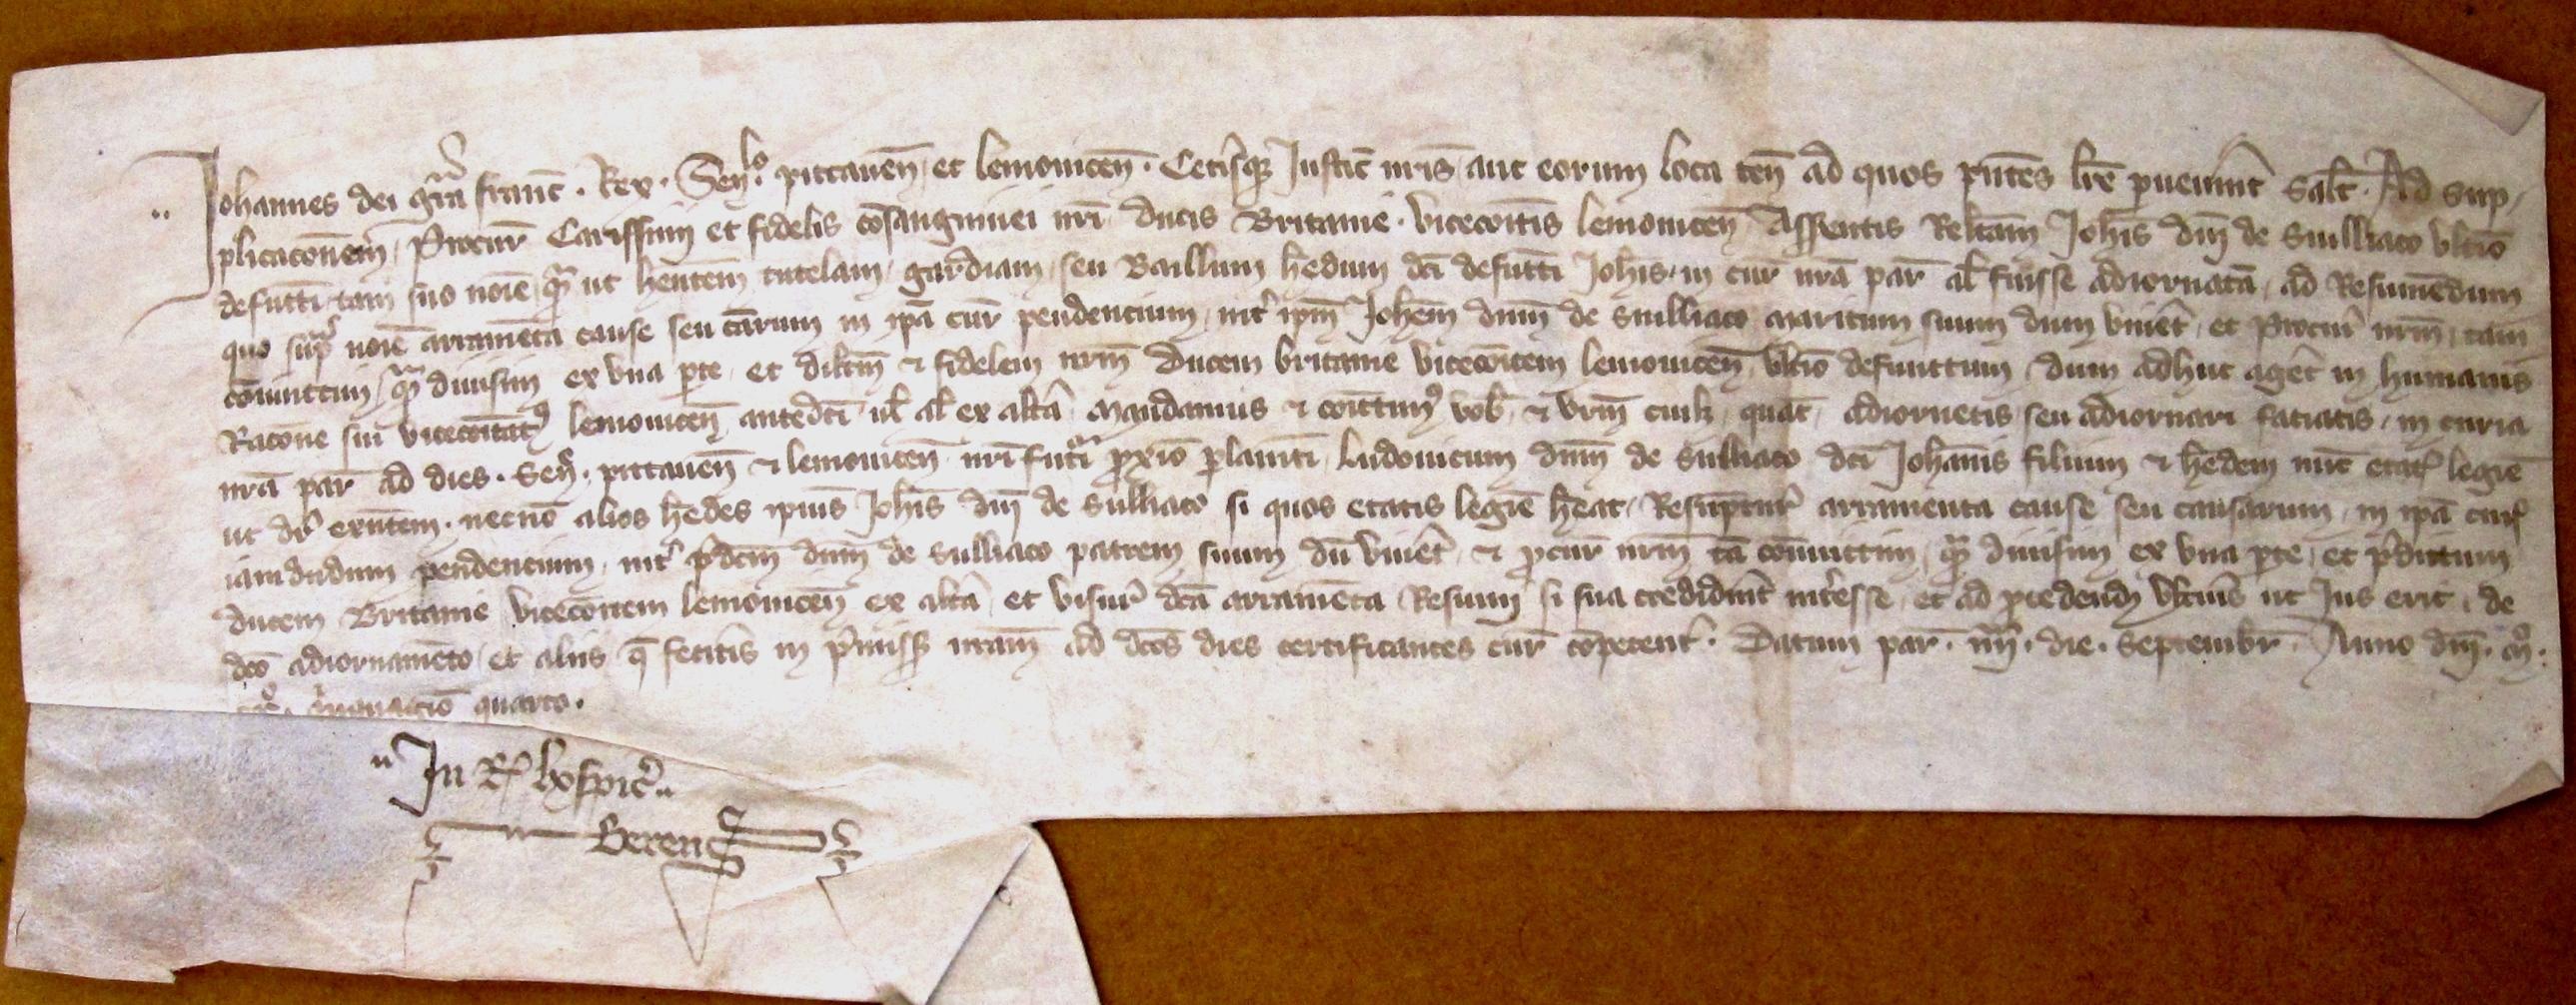 Johannes dei gra franc . Rex . Senlo pittauen et lemouicen . Cetisque Justic nris aut eorum loca ten ad quos pntes lre puenint salt . Ad sup-
plicaconem Procur Carissimi et fidelis cosanguinei nri ducis Britanie . vicecoitis lemouicen Asserentis Relictam Johis dni de Sulliaco vltio
defuncti tam suo noie qm ut hentem tutelam gardiam seu Baillum hedum dci defuncti Johis in cur nra par al fuisse adiornata ad Resumendum
quo sup noie arramenta cause seu carum in ipa cur pendencium int ipm Johem dnm de sulliaco maritum suum dum viuet et Procur nrm tam
coniunctim qm diuisim ex vna pte et dilcm & fidelem nrm Ducem britanie vicecoitem lemouicen vltio defunctum dum adhuc aget in humanis
Racone sui vicecoitatus lemouicen antedci ul al ex alta Mandamus & coittimus vob & vrm cuilz quat adiornetis seu adiornari faciatis in curia
nra par ad dies . Sen . pittauen & lemouicen nri futi pxio plamti Ludouicum dnm de sulliaco dci Johanis filium & hedem nuc etatis legie
ut dr exntem . necno alios hedes ipius Johis dni de sulliaco si quos etatis legie heat Resuptur arramenta cause seu causarum in ipa cur
iamdudum pendencium int pdcm dnm de sulliaco patrem suum du viuet & pcur nrm ta coniunctim qm diuisim ex vna pte et pdictum
ducem Britanie vicecoitem lemouicen ex alta et visur dca arramenta Resumi si sua credidint intesse et ad pcedend vltius ut Jus erit de
dco adiornameto et aliis q fecitis in pmissis nram ad dcos dies certificantes cur copetent . Datum par . iiii . die . Septembr . Anno dni . mo .
quarto .
In Req hospic
Bereng